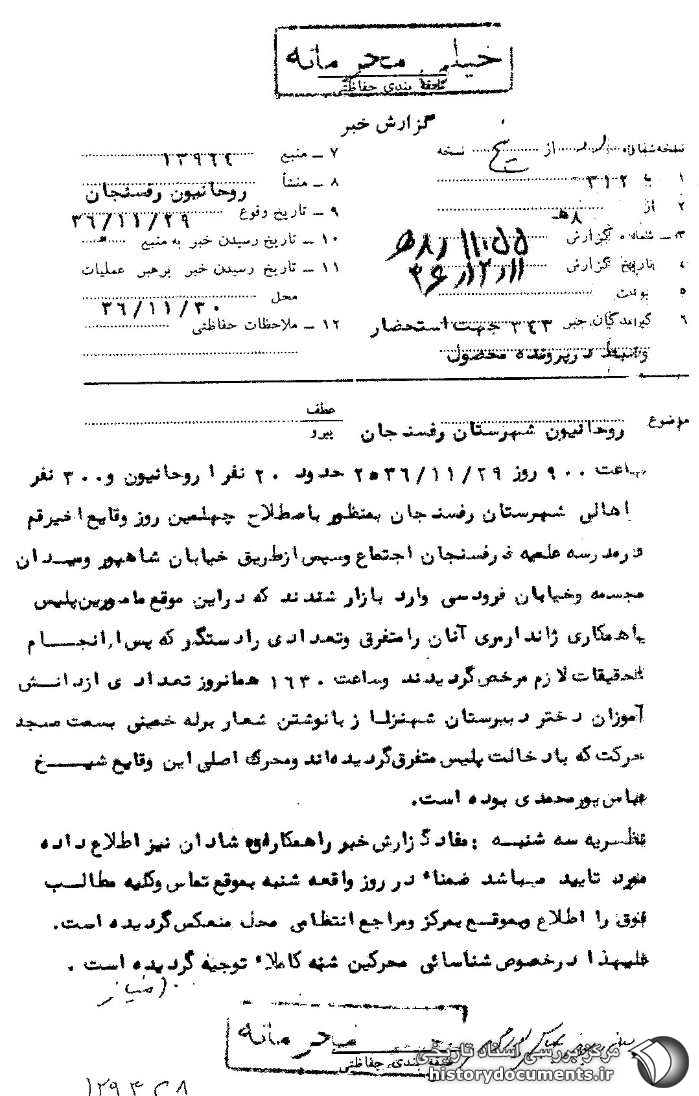 خیلی محرمانه
طبقه بندی حفاظتی
گزارش خبر
نسخه شماره از پنج نسخه
۱ به ۳۱۲
۲ از ۸ ه‍
۳ ـ شماره گزارش
۴ تاریخ گزارش
۵ پیوست
۶ گیرندگان خبر ۳۴۳ جهت استحضار
وضبط در پرونده محصول
۷ ـ منبع ۱۳۹۶۴
۸ ـ منشأ روحانیون رفسنجان
۹ ـ تاریخ وقوع ۳۶/۱۱/۲۹
۱۰ ـ تاریخ رسیدن خبر به منبع
۱۱ ـ تاریخ رسیدن خبر برهبر عملیات
محل ۳۶/۱۱/۳۰
۱۲ ـ ملاحظات حفاظتی
موضوع روحانیون شهرستان رفسنجان
عطف
پیرو
ساعت ۹۰۰ روز ۳۶/۱۱/۲۹ ۲۵ حدود ۲۰ نفر از روحانیون و ۳۰۰ نفر
اهالی شهرستان رفسنجان بمنظور باصطلاح چهلمین روز وقایع اخیر قم
در مدرسه علمیه رفسنجان اجتماع وسپس ازطریق خیابان شاهپور ومیدان
مجسمه وخیابان فردوسی وارد بازار شدند که در این موقع مامورین پلیس
باهمکاری ژاندارمری آنان را متفرق وتعدادی را دستگیر که پس از انجام
تحقیقات لازم مرخص گردیدند وساعت ۱۶۳۰ همانروز تعدادی ازدانش
آموزان دختر دبیرستان شهناز با نوشتن شعار برله خمینی بسمت مسجد
حرکت که بادخالت پلیس متفرق گردیده‌اند ومحرک اصلی این وقایع شیخ
عباس پورمحمدی بوده است.
نظریه سه شنبه : مفاد گزارش خبر را همکاران شادان نیز اطلاع داده
مورد تایید میباشد ضمناً در روز واقعه شنبه بموقع تماس وکلیه مطالب
فوق را اطلاع وبموقع بمرکز ومراجع انتظامی محل منعکس گردیده است.
علیهذا درخصوص شناسائی محرکین شنبه کاملاً توجیه گردیده است .
خیلی محرمانه
طبقه بندی حفاظتی
مرکز بررسی اسناد تاریخی
historydocuments.ir